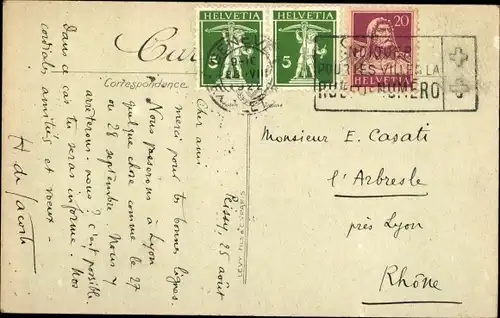 HELVETIA
5
HELVETIA
5
HELVETIA
20
POUR LES VILLES LA
RUE NUMERO
Correspondance
Rissy, 25 août
Cher ami
merci pour tes bonnes lignes.
Nous passerons à Lyon
quelque chose comme le 27
ou 28 septembre. Nous y
arrêterons-nous? c'est possible.
Dans ce cas tu seras informé. Nos
cordiales amitiés et voeux -
Monsieur E. Casati
l'Arbresle
près Lyon
Rhône